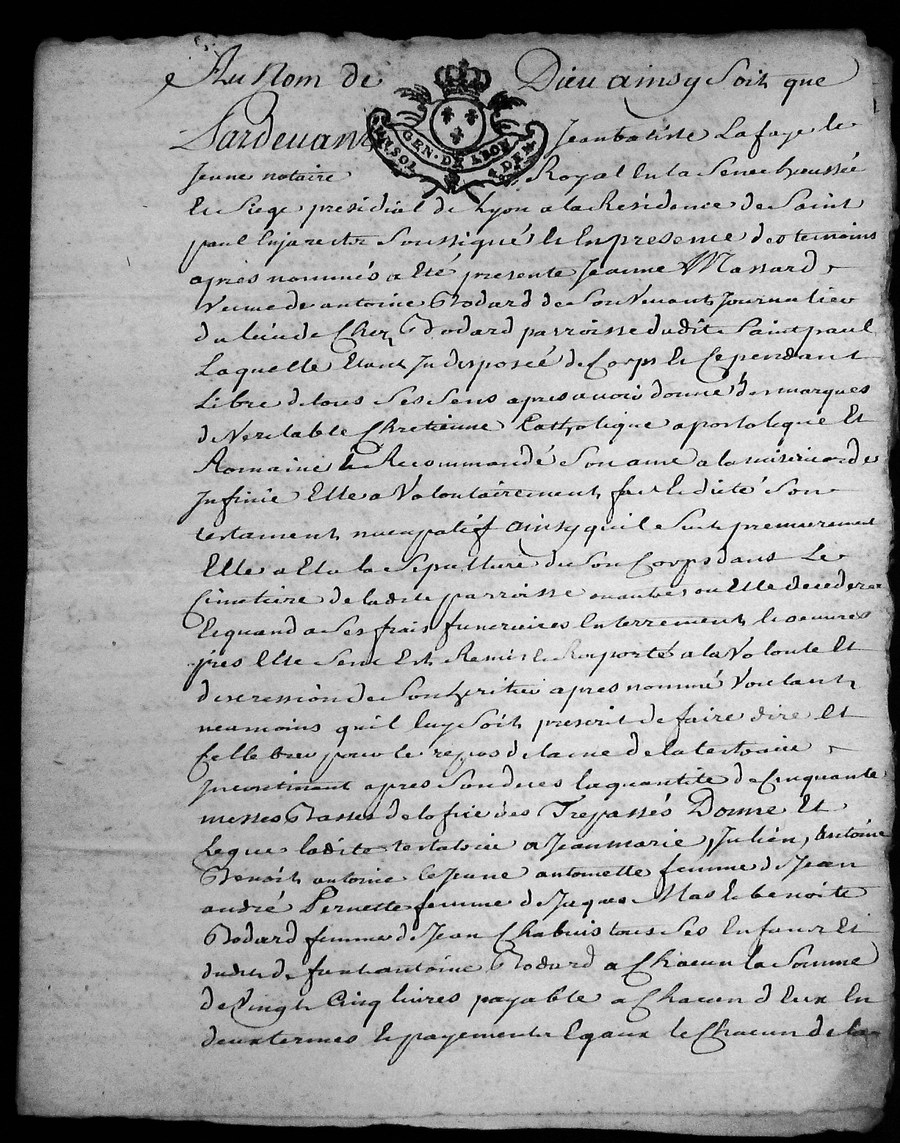 Au Nom de Dieu ainsy Soit que
GEN. DE LYON
Pardevant Jeanbatiste Lafaye le
Jeune notaire Royal En la Senechaussée
Et Siege presidial de Lyon a la Résidence de Saint
paul Enjarest Soussigné Et En presence des temoins
après nommés a Eté presente Jeanne Massard
Veuve de antoine Bodard de Son Vivant Journalier
du lieu de Chez Bodard parroisse dudit Saint paul
Laquelle Etant Indisposée de Corps Et Cependant
Libre de tous Ses Sens apres avoir donné des marques
de Veritable Chretienne Catholique apostolique Et
Romaine Et Recommandé Son ame a la misericorde
Infinie Elle a Volontairement fait Et dicté Son
testament nuncupatif ainsy quil Suit premierement
Elle a Elu la Sepulture de Son Corps dans Le
Cimetiere de ladite parroisse ou autres ou Elle decedera
Et quand a Ses frais funeraires Enterrement Et oeuvres
pies Elle Sen Est Remis Et Raporté a la Volonté Et
discression de Son heritier apres nommé Voulant
neamoins quil luy Soit prescrit de faire dire Et
Cellebrer pour le repos de lame de la testatrice
Incontinant apres Son deces la quantité de Cinquante
messes Basses de loffice des Trepassés Donne Et
Legue ladite testatrice a Jeanmarie, Julien, Antoine
Benoit antoine le Jeune antoinette femme de Jean
andré Pernette femme de Jaques Mas Et benoite
Bodard femme de Jean Chabuis tous Ses Enfans Et
dudit defunt antoine Bodard a Chacun la Somme
de Vingt Cinq livres payable a Chacun dEux En
deux termes Et payements Egaux Et Chacun de la